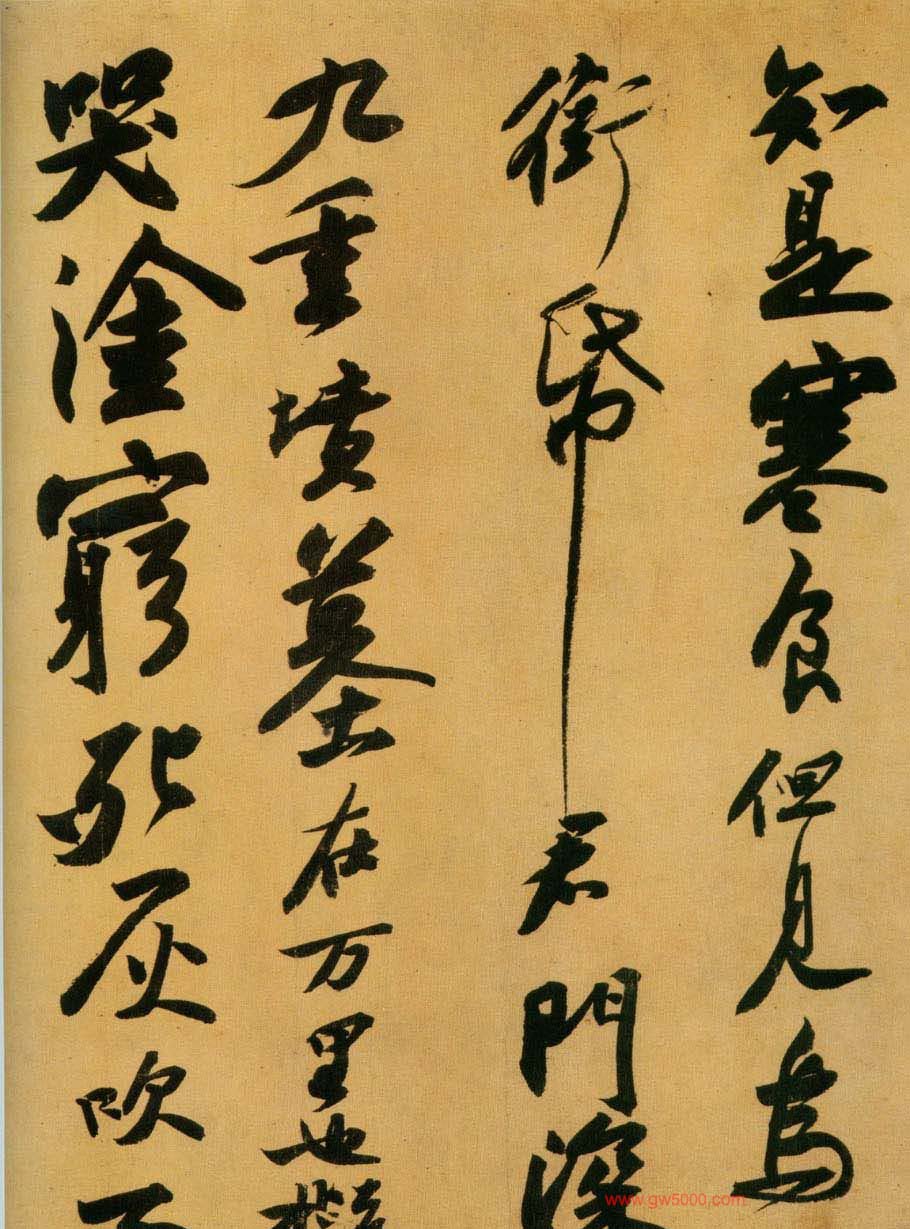 知是寒食但見烏
銜帋君門深
九重墳墓在万里也擬
哭塗窮死灰吹不
www.gw5000.com